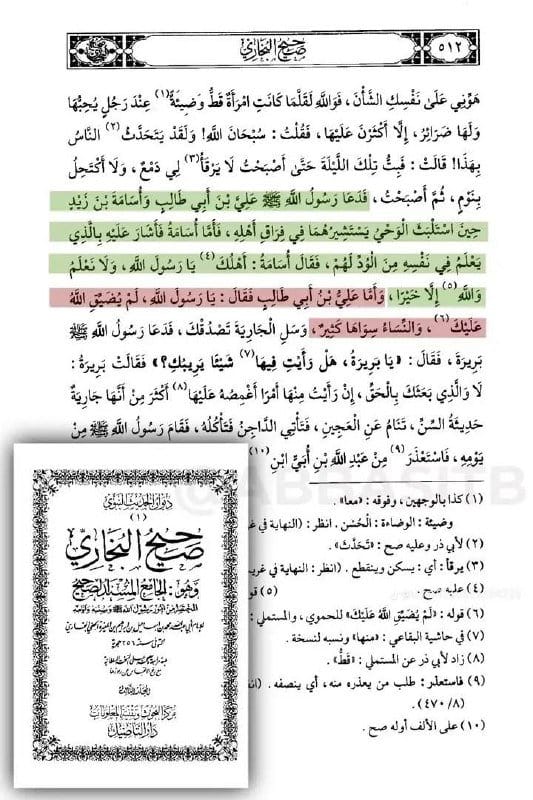 ٥١٢
صَحِيحُ البُخَارِيّ
هَوِّنِي عَلَىٰ نَفْسِكِ الشَّأْنَ ، فَوَاللَّهِ لَقَلَّمَا كَانَتِ امْرَأَةٌ قَطُّ وَضِيئَةٌ(١) عِنْدَ رَجُلٍ يُحِبُّهَا
وَلَهَا ضَرَائِرُ ، إِلَّا أَكْثَرْنَ عَلَيْهَا ، فَقُلْتُ : سُبْحَانَ اللَّهِ! وَلَقَدْ يَتَحَدَّثُ(٢) النَّاسُ
بِهَذَا! قَالَتْ : فَبِتُّ تِلْكَ اللَّيْلَةَ حَتَّىٰ أَصْبَحْتُ لَا يَرْقَأُ(٣) لِي دَمْعٌ ، وَلَا أَكْتَحِلُ
بِنَوْمٍ ، ثُمَّ أَصْبَحْتُ ، فَدَعَا رَسُولُ اللَّهِ ﷺ عَلِيَّ بْنَ أَبِي طَالِبٍ وَأُسَامَةَ بْنَ زَيْدٍ
حِينَ اسْتَلْبَثَ الْوَحْيُ يَسْتَشِيرُهُمَا فِي فِرَاقِ أَهْلِهِ ، فَأَمَّا أُسَامَةُ فَأَشَارَ عَلَيْهِ بِالَّذِي
يَعْلَمُ فِي نَفْسِهِ مِنَ الْوُدِّ لَهُمْ ، فَقَالَ أُسَامَةُ : أَهْلُكَ(٤) يَا رَسُولَ اللَّهِ ، وَلَا نَعْلَمُ
وَاللَّهِ(٥) إِلَّا خَيْرًا ، وَأَمَّا عَلِيُّ بْنُ أَبِي طَالِبٍ فَقَالَ : يَا رَسُولَ اللَّهِ ، لَمْ يُضَيِّقِ اللَّهُ
عَلَيْكَ(٦) ، وَالنِّسَاءُ سِوَاهَا كَثِيرٌ ، وَسَلِ الْجَارِيَةَ تَصْدُقْكَ ، فَدَعَا رَسُولُ اللَّهِ ﷺ
بَرِيرَةَ ، فَقَالَ : «يَا بَرِيرَةُ ، هَلْ رَأَيْتِ فِيهَا(٧) شَيْئًا يَرِيبُكِ؟» فَقَالَتْ بَرِيرَةُ :
لَا وَالَّذِي بَعَثَكَ بِالْحَقِّ ، إِنْ رَأَيْتُ مِنْهَا أَمْرًا أَغْمِصُهُ عَلَيْهَا(٨) أَكْثَرَ مِنْ أَنَّهَا جَارِيَةٌ
حَدِيثَةُ السِّنِّ ، تَنَامُ عَنِ الْعَجِينِ ، فَتَأْتِي الدَّاجِنُ فَتَأْكُلُهُ ، فَقَامَ رَسُولُ اللَّهِ ﷺ مِنْ
يَوْمِهِ ، فَاسْتَعْذَرَ(٩) مِنْ عَبْدِ اللَّهِ بْنِ أُبَيٍّ ابْنِ(١٠)
(١) كذا بالوجهين ، وفوقه : «معا» .
وضيئة : الوضاءة : الحُسْن . انظر : (النهاية في
(٢) لأبي ذر وعليه صح : «تَحَدَّثَ» .
(٣) يرقأ : أي : يسكن وينقطع . (انظر : النهاية في
(٤) عليه صح .
(٥)
(٦) قوله : «لَمْ يُضَيِّقِ اللَّهُ عَلَيْكَ» للحموي ، والمستملي :
(٧) في حاشية البقاعي : «منها» ونسبه لنسخة .
(٨) زاد لأبي ذر عن المستملي : «قَطُّ» .
(٩) فاستعذر : طلب من يعذره منه ، أي ينصفه .
(٨/ ٤٧٠)
(١٠) على الألف أوله صح .
ديوان الحديث النبوي
(١)
صحيح البخاري
وهو : الجامع المسند الصحيح
مركز البحوث وتقنية المعلومات
دار التأصيل
@ABBASITB